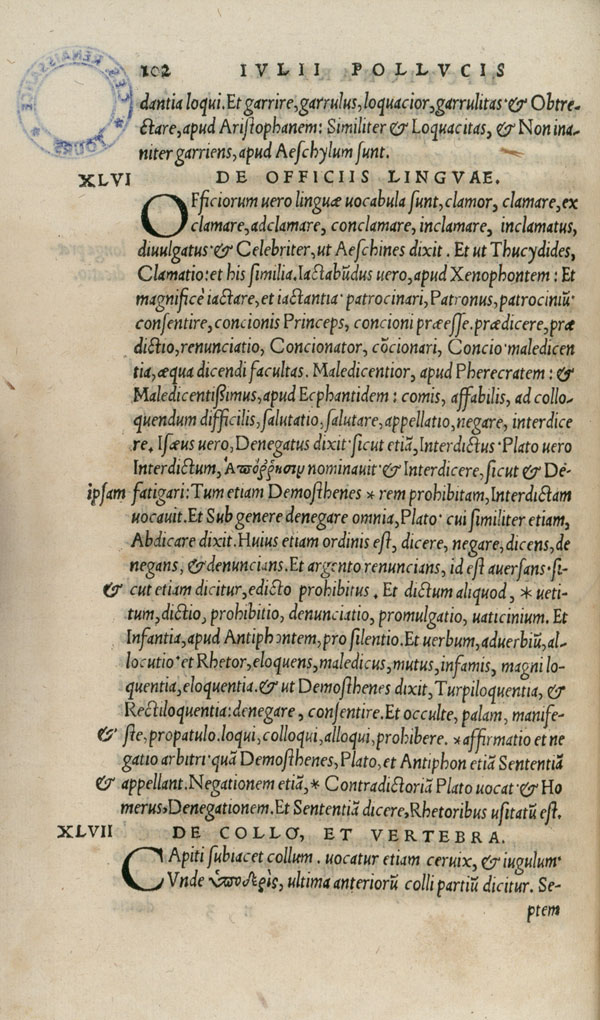 102 IVLII POLLVCIS
dantia loqui. Et garrire, garrulus, loquacior, garrulitas· & Obtre-
ctare, apud Aristophanem: Similiter & Loquacitas, & Non ina-
niter garriens, apud Aeschylum sunt.
XLVI DE OFFICIIS LINGVAE.
OFficiorum uero linguæ uocabula sunt, clamor, clamare, ex
clamare, adclamare, conclamare, inclamare, inclamatus,
diuulgatus· & Celebriter, ut Aeschines dixit. Et ut Thucydides,
Clamatio: et his similia. Iactabūdus uero, apud Xenophontem: Et
magnificè iactare, et iactantia· patrocinari, Patronus, patrociniū·
consentire, concionis Princeps, concioni præesse. prædicere, præ
dictio, renunciatio, Concionator, cōcionari, Concio· maledicen
tia, æqua dicendi facultas. Maledicentior, apud Pherecratem: &
Maledicentißimus, apud Ecphantidem: comis, affabilis, ad collo-
quendum difficilis, salutatio, salutare, appellatio, negare, interdice
re. Isæus uero, Denegatus dixit· sicut etiā, Interdictus· Plato uero
Interdictum, Ἀπόῤῥησιν nominauit· & Interdicere, sicut & De-
ipsam fatigari: Tum etiam Demosthenes * rem prohibitam, Interdictam
uocauit. Et Sub genere denegare omnia, Plato· cui similiter etiam,
Abdicare dixit. Huius etiam ordinis est, dicere, negare, dicens, de
negans, & denuncians. Et argento renuncians, id est auersans· si-
& cut etiam dicitur, edicto prohibitus. Et dictum aliquod, * ueti-
tum, dictio, prohibitio, denunciatio, promulgatio, uaticinium. Et
Infantia, apud Antiphontem, pro silentio. Et uerbum, aduerbiū, al-
locutio· et Rhetor, eloquens, maledicus, mutus, infamis, magni lo-
quentia, eloquentia. & ut Demosthenes dixit, Turpiloquentia, &
Rectiloquentia: denegare, consentire. Et occulte, palam, manife-
& ste, propatulo. loqui, colloqui, alloqui, prohibere. * affirmatio et ne
gatio arbitri· quā Demosthenes, Plato, et Antiphon etiā Sententiā
& appellant. Negationem etiā, * Contradictoriā Plato uocat· & Ho
merus, Denegationem. Et Sententiā dicere, Rhetoribus usitatū est.
XLVII DE COLLO, ET VERTEBRA.
CApiti subiacet collum. uocatur etiam ceruix, & iugulum·
Vnde ὑποδερὶς, ultima anteriorū colli partiū dicitur. Se-
ptem